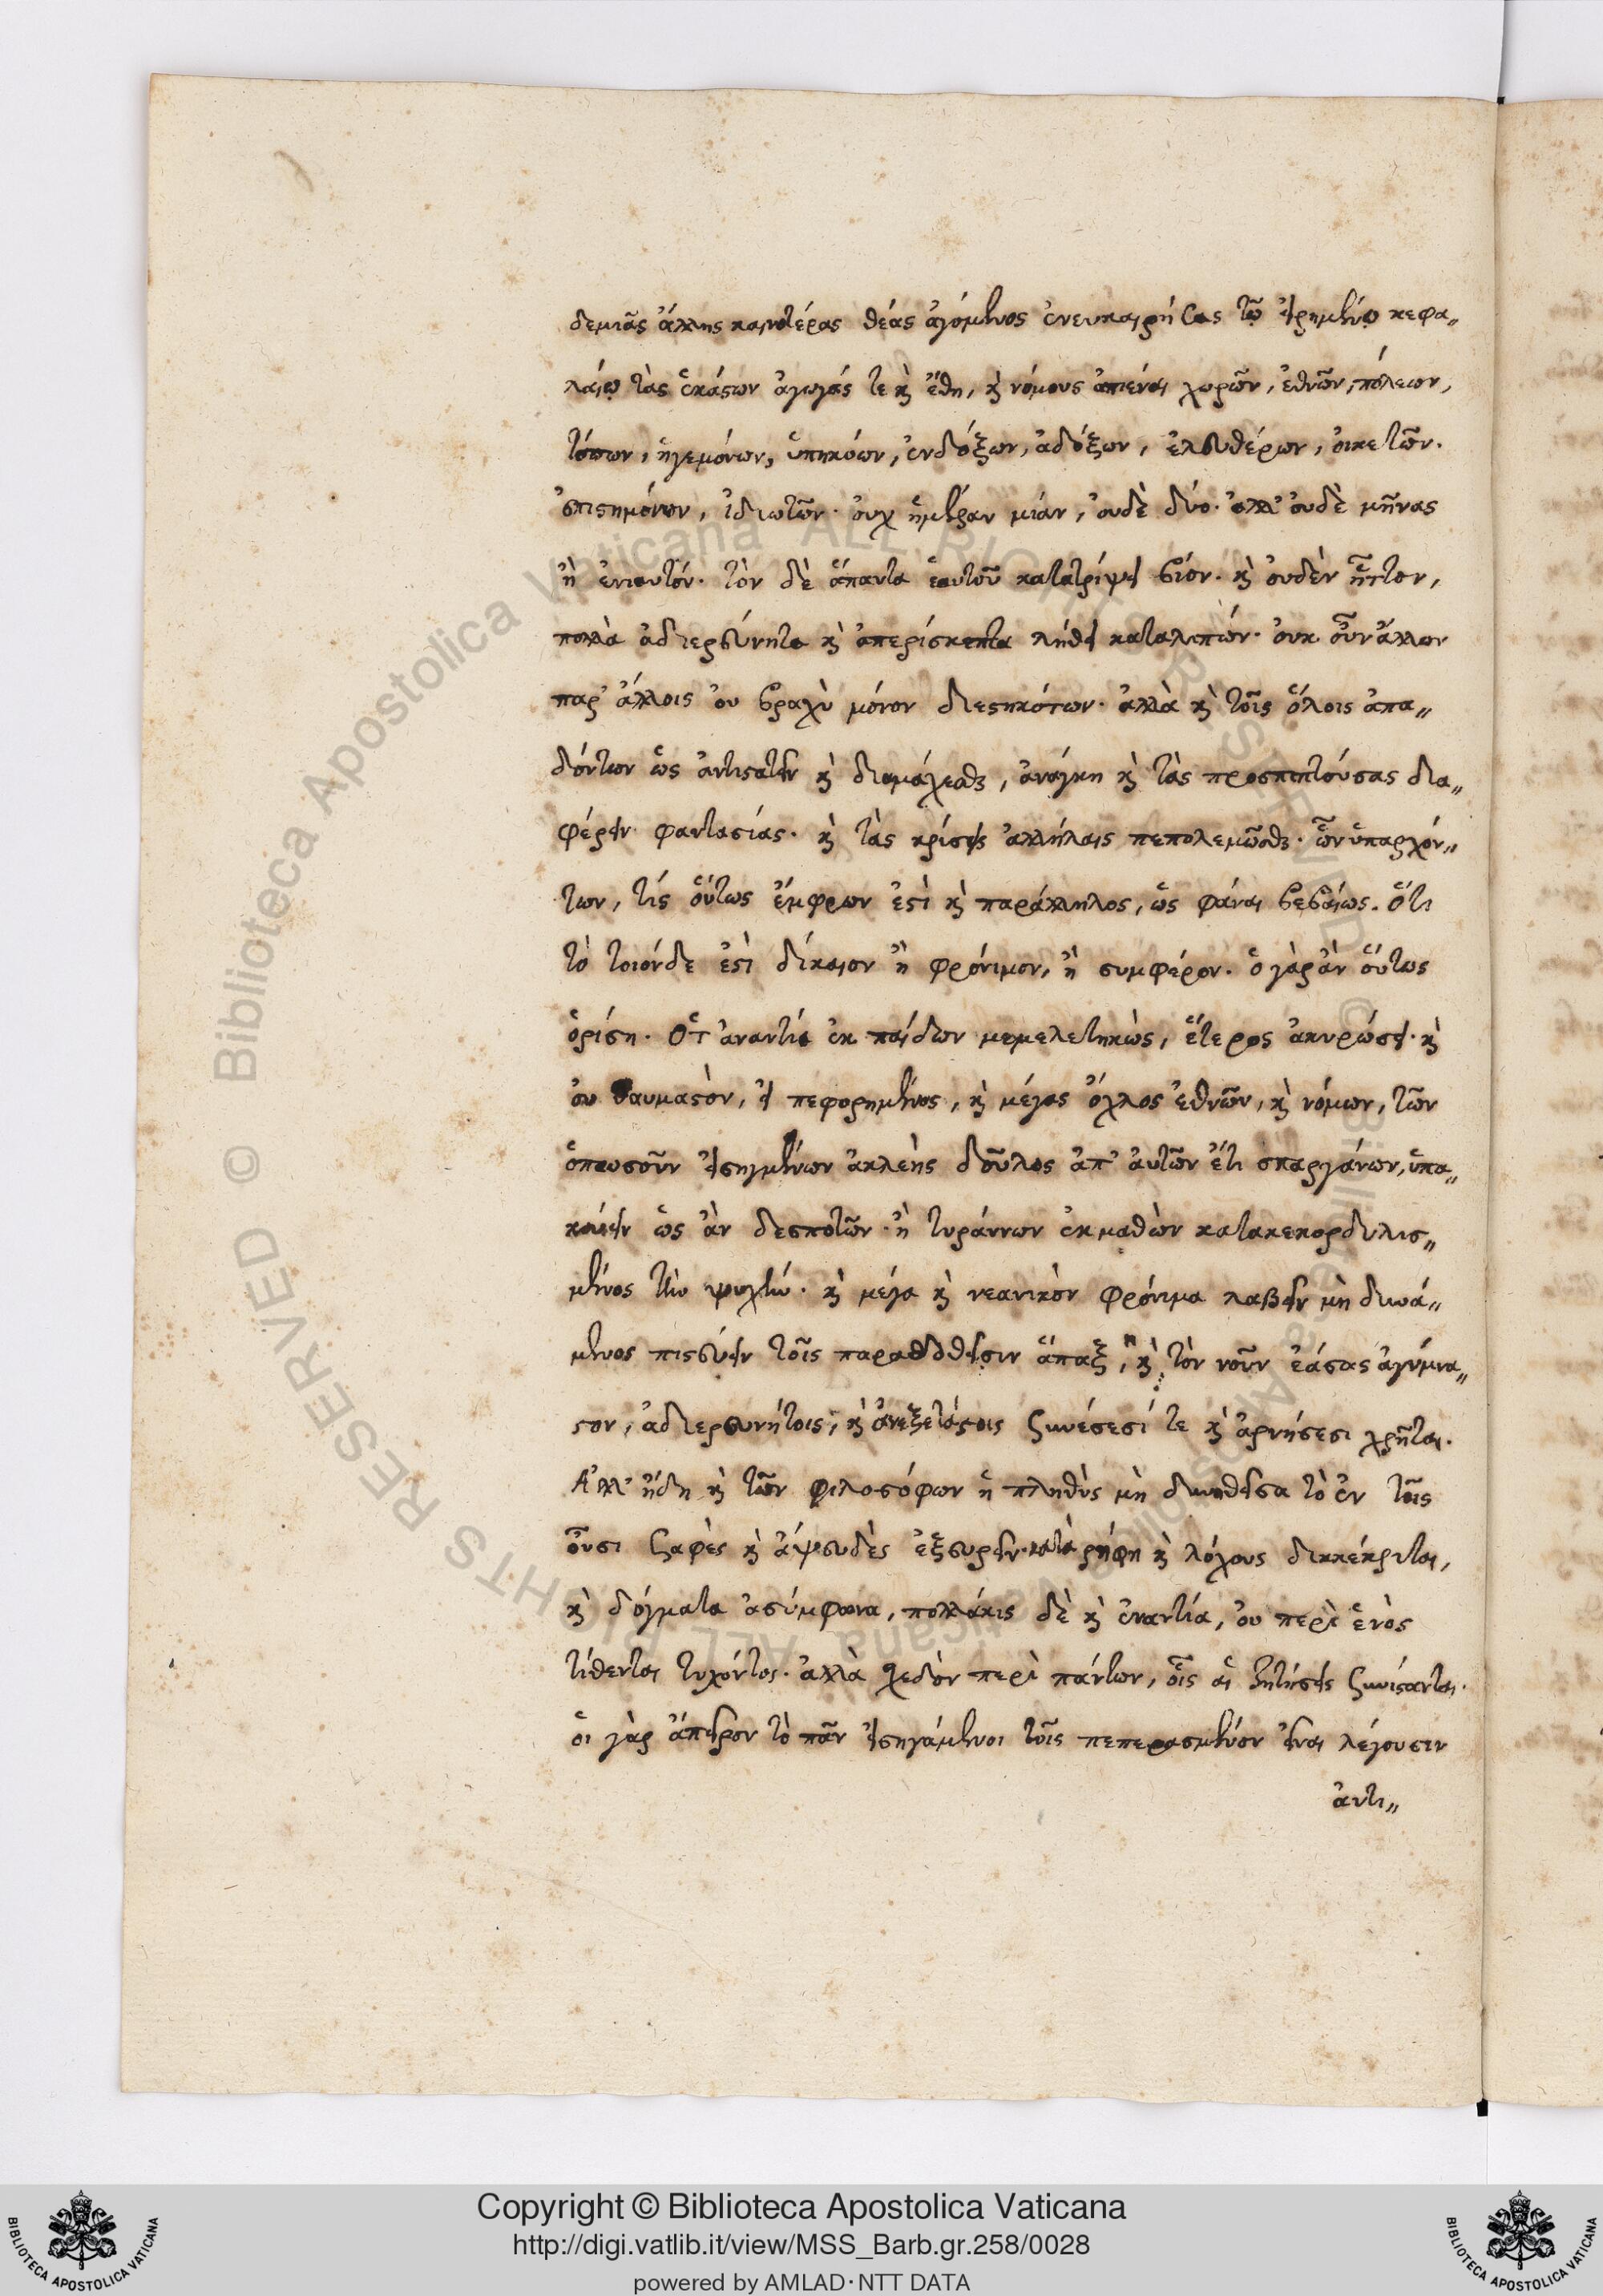 δεμιᾶς ἄλλης καινοτέρας θέας ἀγόμενος ἐνευκαιρήσας τῷ εἰρημένῳ κεφα„
λαίῳ τὰς ἑκάστων ἀγωγάς τε καὶ ἔθη, καὶ νόμους ἀπιέναι χωρῶν, ἐθνῶν, πόλεων,
τόπων, ἡγεμόνων, ὑπηκόων, ἐνδόξων, ἀδόξων, ἐλευθέρων, οἰκετῶν.
ἐπιστημόνων, ἰδιωτῶν· οὐχ ἡμέραν μίαν, οὐδὲ δύο· ἀλλ' οὐδὲ μῆνας
ἢ ἐνιαυτόν· τὸν δὲ ἅπαντα ἑαυτοῦ κατατρίψει βίον· καὶ οὐδὲν ἧττον,
πολλὰ ἀδιερεύνητα καὶ ἀπερίσκεπτα λήθει καταλιπών· οὐκ οὖν ἄλλων
παρ' ἄλλοις οὐ βραχὺ μόνον διεστηκότων· ἀλλὰ καὶ τοῖς ὅλοις ἀπα„
δόντων ὡς ἀντιστατεῖν καὶ διαμάχεσθαι, ἀνάγκη καὶ τὰς προσπιπτούσας δια„
φέρειν φαντασίας· καὶ τὰς κρίσεις ἀλλήλαις πεπολεμῶσθαι· ὧν ὑπαρχόν„
των, τίς οὕτως ἔμφρων ἐστὶ καὶ παράλληλος, ὡς φάναι βεβαίως. ὅτι
τὸ τοιόνδε ἐστὶ δίκαιον ἢ φρόνιμον, ἢ συμφέρον· ὃ γὰρ ἂν οὕτως
ὁρίση. ὅτ ἀναντία ἐκ παίδων μεμελετηκὼς, ἕτερος ἀκυρώσει· καὶ
οὐ θαυμαστὸν, εἰ πεφορημένος, καὶ μέγας ὄχλος ἐθνῶν, καὶ νόμων, τῶν
ὁπωσοῦν εἰσηγμένων ἀκλεὴς δοῦλος ἀπ' αὐτῶν ἔτι σπαργάνων, ὑπα„
κούειν ὡς ἂν δεσποτῶν· ἢ τυράννων ἐκμαθὼν κατακεκορδυλισ„
μένος τὴν ψυχὴν· καὶ μέγα καὶ νεανικὸν φρόνιμα λαβεῖν μὴ δυνά„
μενος πιστεύειν τοῖς παραδοθεῖσιν ἅπαξ, καὶ τὸν νοῦν ἐάσας ἀγύμνα„
στον, ἀδιερευνήτοις, καὶ ἀνεξετάστοις συνέσεσί τε καὶ ἀρνήσεσι χρῆται.
Ἀλλ' ἤδη καὶ τῶν φιλοσόφων ἡ πληθὺς μὴ δυνηθεῖσα τὸ ἐν τοῖς
οὖσι σαφὲς καὶ ἀψευδὲς ἐξευρεῖν· κατὰ ρήφη καὶ λόχους διακέκριται,
καὶ δόγματα ἀσύμφωνα, πολλάκις δὲ καὶ ἐναντία, οὐ περὶ ἑνὸς
τίθενται τυχόντος· ἀλλὰ σχεδὸν περὶ πάντων, οἷς αἱ ζητήσεις συνίστανται·
οἱ γὰρ ἄπειρον τὸ πᾶν εἰσηγάμενοι τοῖς πεπερασμένον εἶναι λέγουσιν
ἀντι„
Copyright © Biblioteca Apostolica Vaticana
http://digi.vatlib.it/view/MSS_Barb.gr.258/0028
powered by AMLAD·NTT DATA